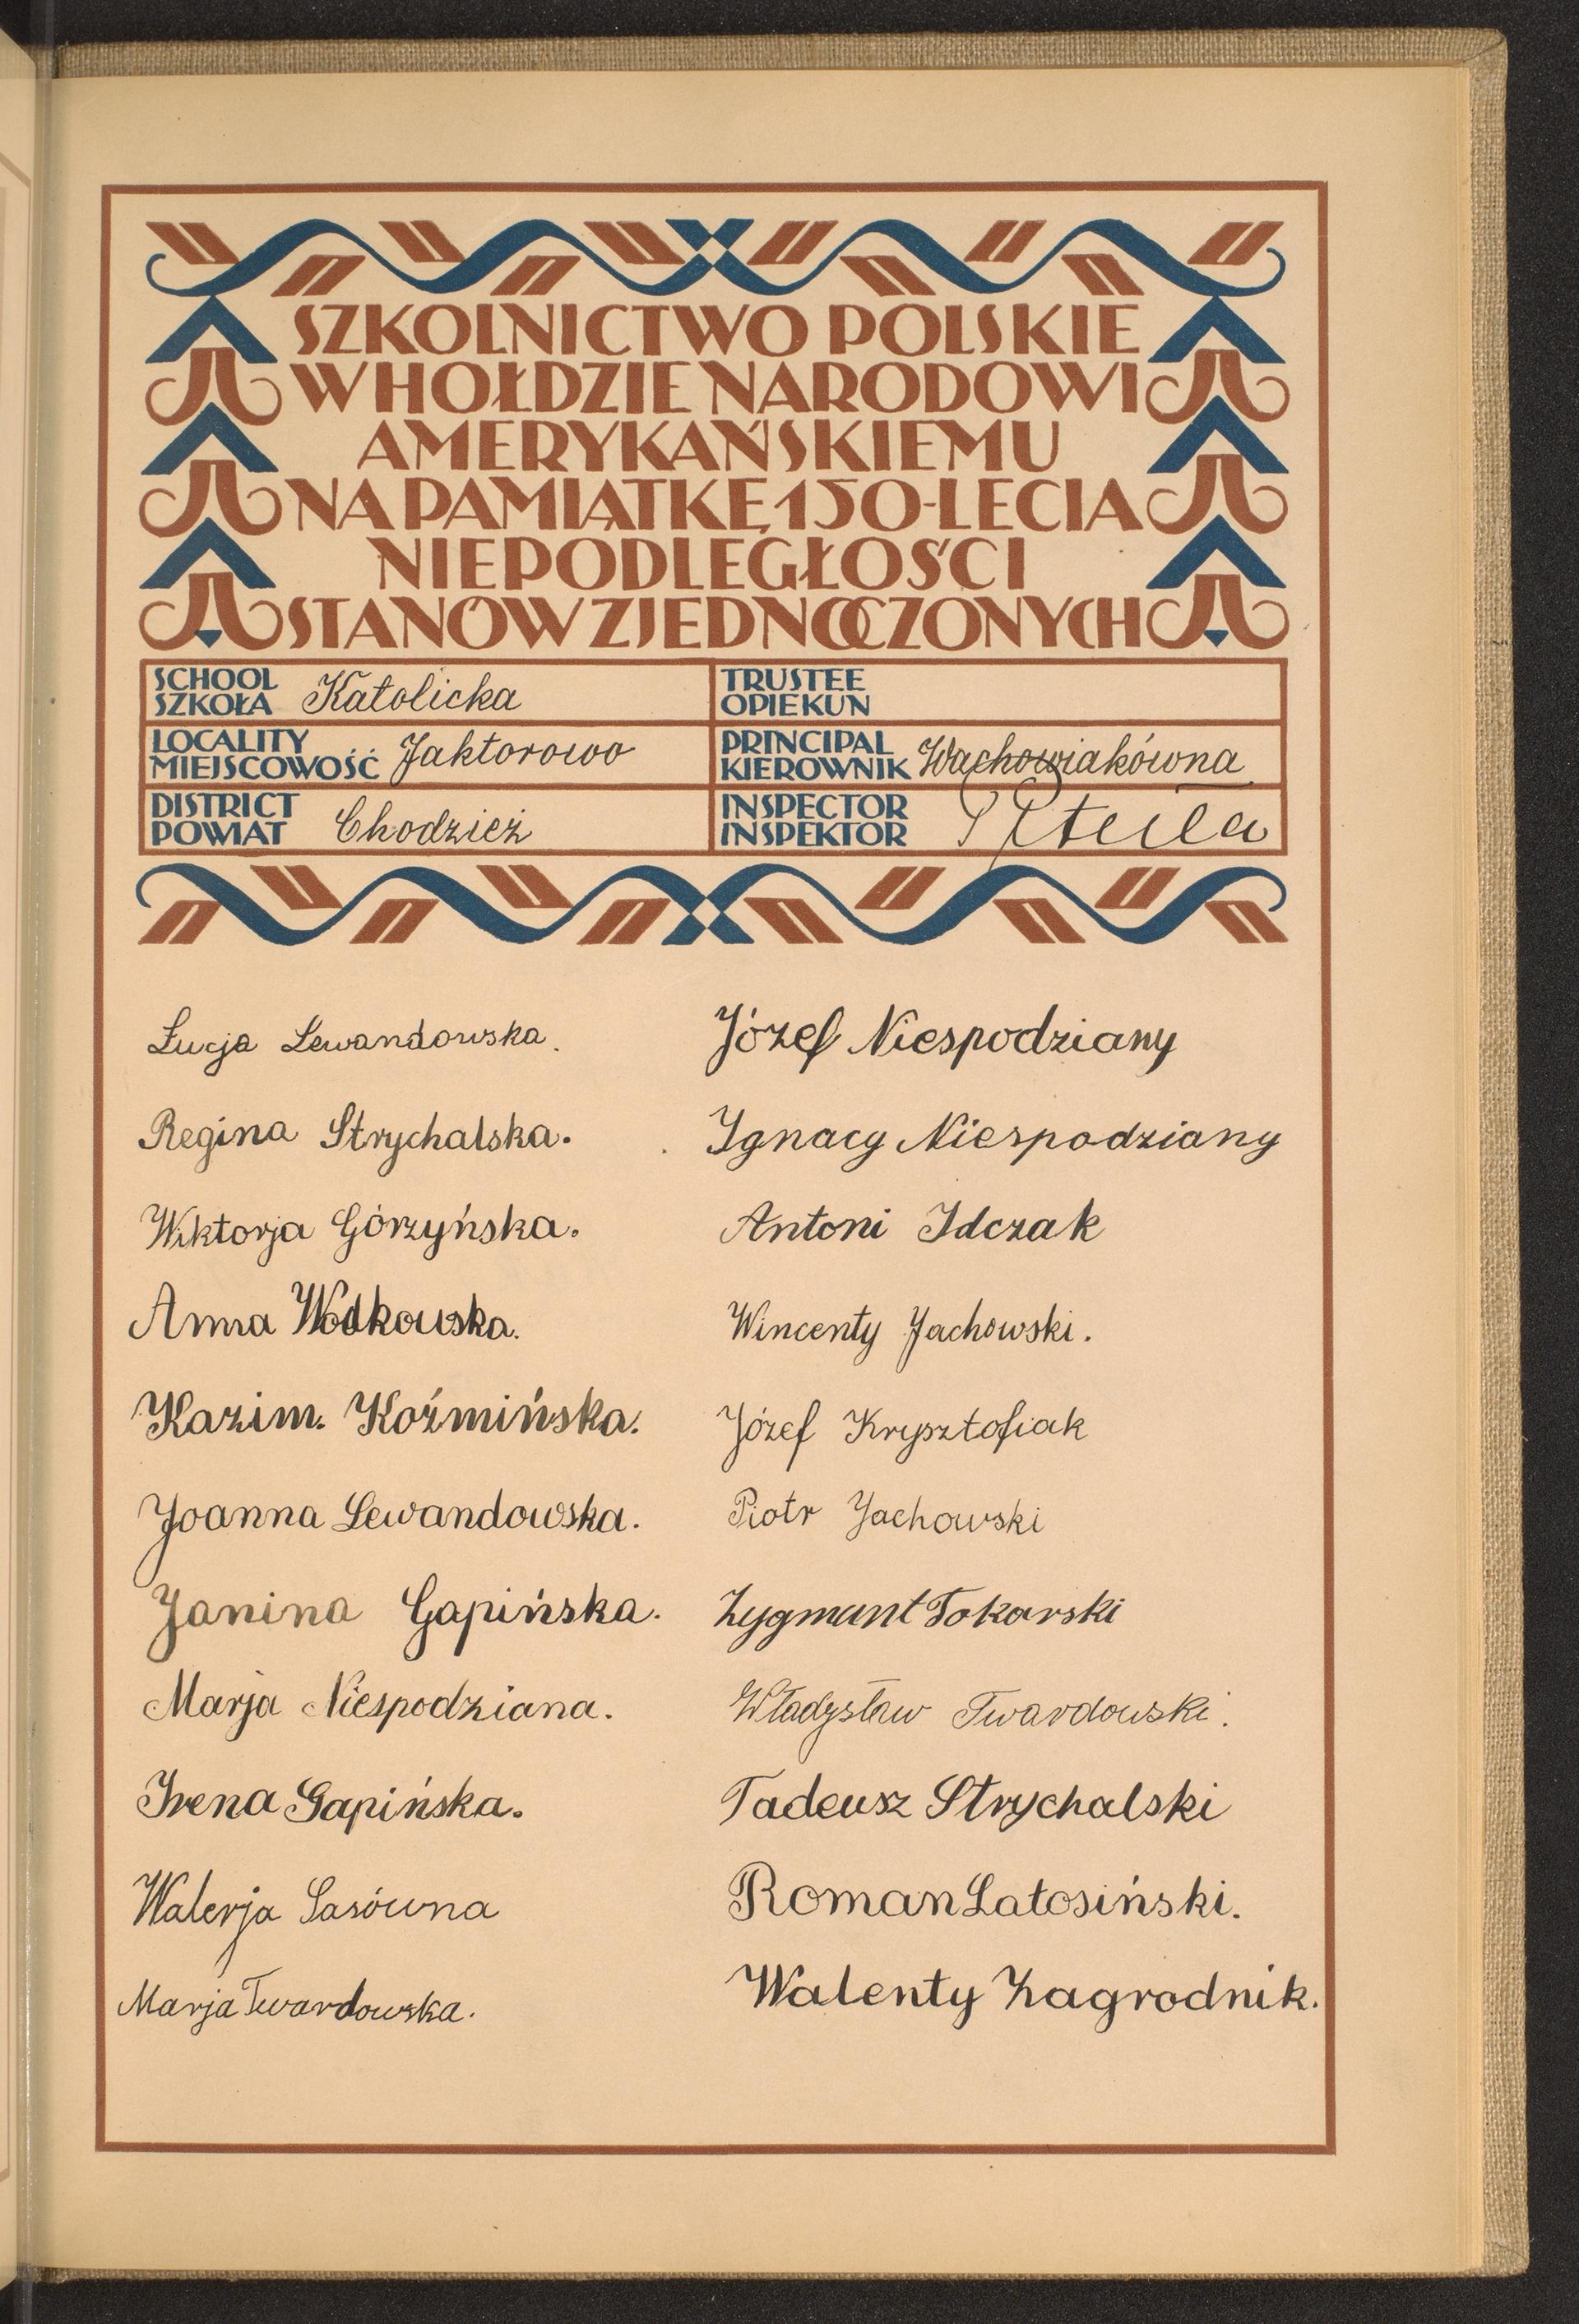 SZKOLNICTWO POLSKIE
W HOŁDZIE NARODOWI
AMERYKAŃSKIEMU
NA PAMIĄTKĘ 150-LECIA
NIEPODLEGŁOŚCI
STANÓW ZJEDNOCZONYCH
SCHOOL
SZKOŁA Katolicka
TRUSTEE
OPIEKUN
LOCALITY
MIEJSCOWOŚĆ Jaktorowo
PRINCIPAL
KIEROWNIK Wachowiakówna
DISTRICT
POWIAT Chodzież
INSPECTOR
INSPEKTOR
Łucja Lewandowska.
Regina Strychalska.
Wiktorja Górzyńska.
Anna Wodkowska.
Kazim. Koźmińska.
Joanna Lewandowska.
Janina Gapińska.
Marja Niespodziana.
Irena Gapińska.
Walerja Sasówna
Marja Twardowska.
Józef Niespodziany
Ignacy Niespodziany
Antoni Idczak
Wincenty Jachowski.
Józef Krysztofiak
Piotr Jachowski
Zygmunt Tokarski
Władysław Twardowski.
Tadeusz Strychalski
Roman Latosiński.
Walenty Zagrodnik.